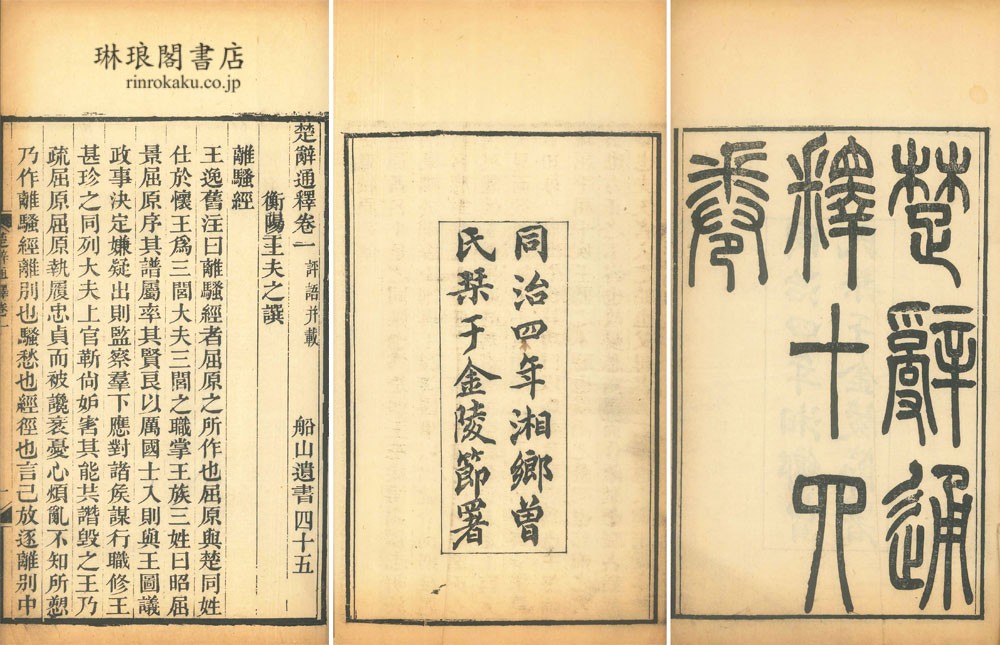 楚辭通
釋十四
卷
同治四年湘鄉曾
氏栞于金陵節署
琳琅閣書店
rinrokaku.co.jp
楚辭通釋卷一 評語并載 船山遺書四十五
衡陽王夫之譔
離騷經
王逸舊注曰離騷經者屈原之所作也屈原與楚同姓
仕於懷王爲三閭大夫三閭之職掌王族三姓曰昭屈
景屈原序其譜屬率其賢良以厲國士入則與王圖議
政事決定嫌疑出則監察羣下應對諸矦謀行職修王
甚珍之同列大夫上官靳尚妒害其能共譖毀之王乃
疏屈原屈原執履忠貞而被讒衺憂心煩亂不知所愬
乃作離騷經離別也騷愁也經徑也言己放逐離別中